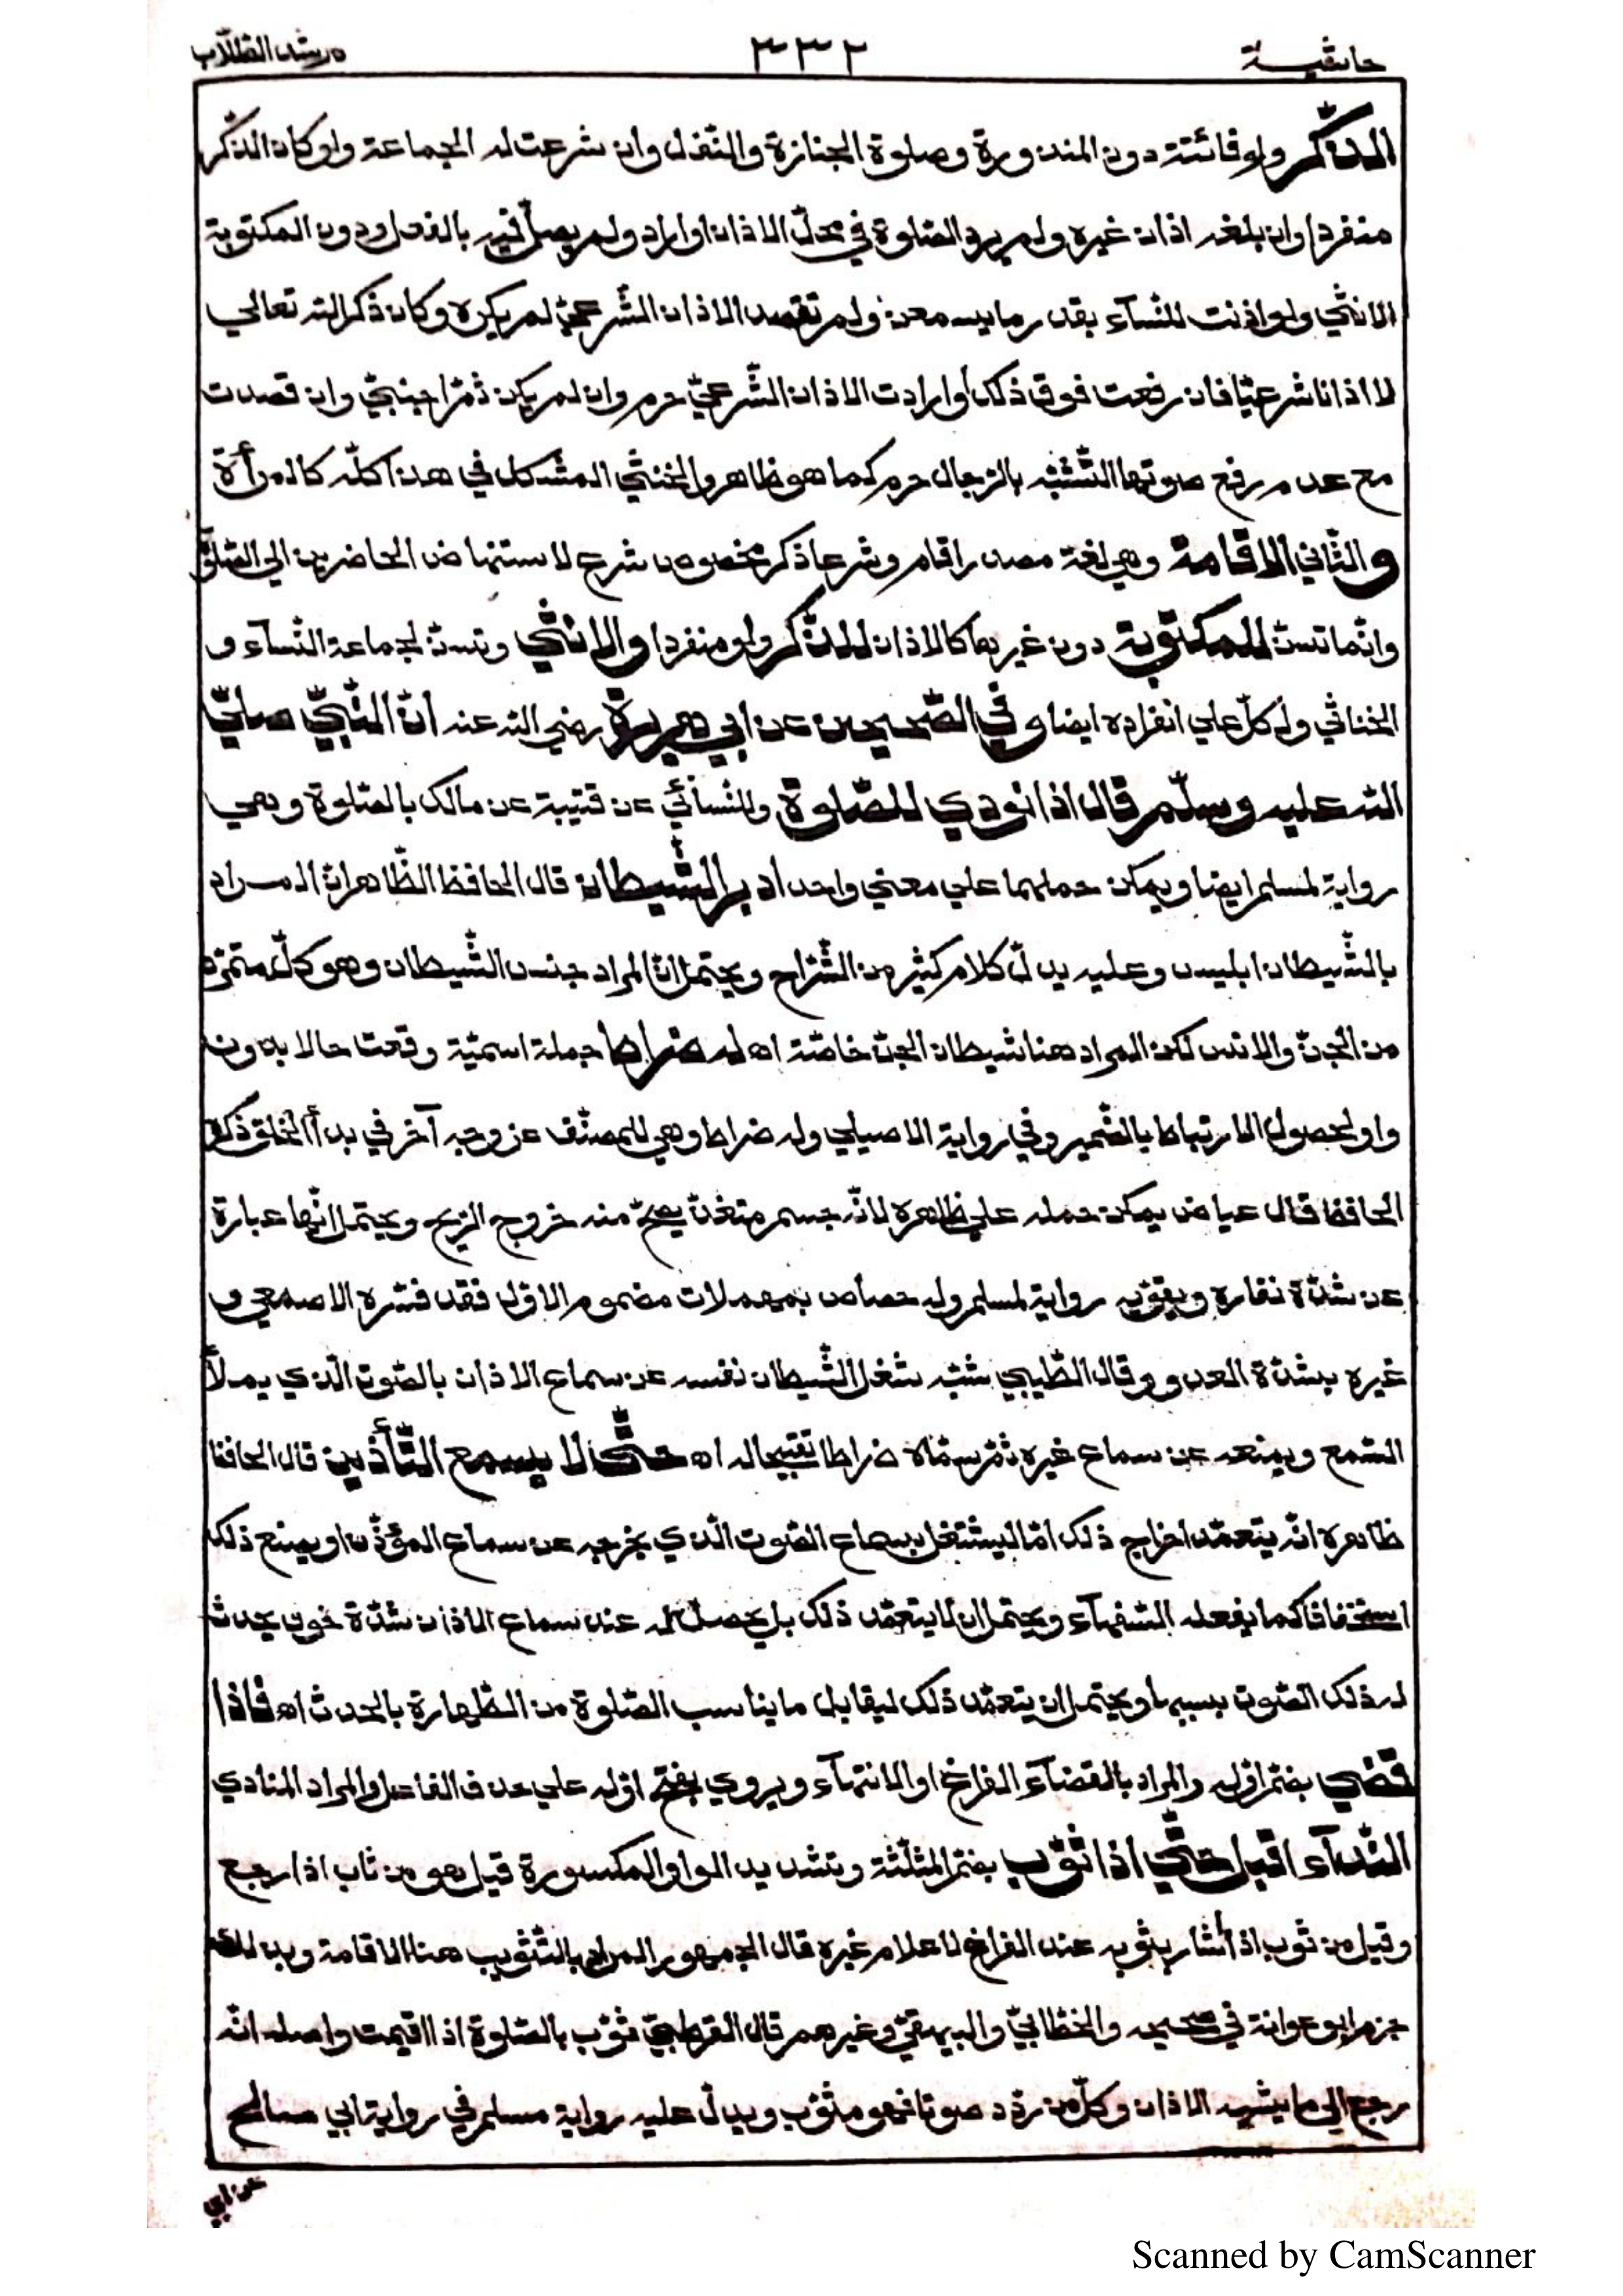 حاشية ٣٣٢ مرشد الطلاب
الذّكر ولو فائتة دون المنذورة وصلوة الجنازة والنّفل وان شرعت له الجماعة ولو كان الذّكر
منفردا وان بلغه اذان غيره ولم يرد الصّلوة في محلّ الاذان او اراد ولم يصلّ فيه بالفعل ودون المكتوبة
الانثي ولو اذنت للنّسآء بقدر ما يسمعن ولم تقصد الاذان الشّرعيّ لم يكره وكان ذكر الله تعالي
لا اذانا شرعيّا فان رفعت فوق ذلك او ارادت الاذان الشّرعيّ حرم وان لم يكن ثمّ اجنبيّ وان قصدت
مع عدم رفع صوتها التّشبّه بالرّجال حرم كما هو ظاهر والخنثي المشكل في هذا كلّه كالمرأة
والثّاني الاقامة وهي لغة مصدر اقام وشرعا ذكر مخصوص شرع لاستنهاض الحاضرين الي الصّلوة
وانّما تسنّ للمكتوبة دون غيرها كالاذان للذّكر ولو منفردا والانثي وتسنّ لجماعة النّسآء و
الخناثي ولكلّ علي انفراده ايضا وفي الصّحيحين عن ابي هريرة رضي الله عنه انّ النّبيّ صلّي
الله عليه وسلّم قال اذا نودي للصّلوة وللنّسآئي عن قتيبة عن مالك بالصّلوة وهي
رواية لمسلم ايضا ويمكن حملهما علي معني واحد ادبر الشّيطان قال الحافظ الظّاهر انّ المراد
بالشّيطان ابليس وعليه يدلّ كلام كثير من الشّرّاح ويحتمل انّ المراد جنس الشّيطان وهو كلّ متمرّد
من الجنّ والانس لكن المراد هنا شيطان الجنّ خاصّة اه له ضراط جملة اسميّة وقعت حالا بدون
واو لحصول الارتباط بالضّمير وفي رواية الاصيلي وله ضراط وهي للمصنّف عن وجه آخر في بدأ الخلق ذكره
الحافظ قال عياض يمكن حمله علي ظاهره لانّه جسم متغذّ يصحّ منه خروج الرّيح ويحتمل انّها عبارة
عن شدّة نفاره ويقوّيه رواية لمسلم وله حصاص بمهملات مضموم الاوّل فقد فسّره الاصمعي و
غيره بشدّة العدو وقال الطّيبي شبّه شغل الشّيطان نفسه عن سماع الاذان بالصّوت الّذي يملأ
السّمع ويمنعه عن سماع غيره ثمّ سمّاه ضراطا تقبيحا له اه حتّي لا يسمع التّأذين قال الحافظ
ظاهره انّه يتعمّد اخراج ذلك امّا ليشتغل بسماع الصّوت الّذي يخرجه عن سماع المؤذّن او يصنع ذلك
استخفافا كما يفعله السّفهآء ويحتمل ان لا يتعمّد ذلك بل يحصل له عند سماع الاذان شدّة خوف يحدث
له ذلك الصّوت بسببها ويحتمل ان يتعمّد ذلك ليقابل ما يناسب الصّلوة من الطّهارة بالحدث اه فاذا
قضي بضمّ اوّله والمراد بالقضآء الفراغ او الانتهآء ويروي بفتح اوّله علي حذف الفاعل والمراد المنادي
النّدآء اقبل حتّي اذا ثوّب بضمّ المثلّثة وتشديد الواو المكسورة قيل هو من ثاب اذا رجع
وقيل من ثوب اذا أشار بثوبه عند الفراغ لاعلام غيره قال الجمهور المراد بالتّثويب هنا الاقامة وبذلك
جزم ابو عوانة في صحيحه والخطّابيّ والبيهقيّ وغيرهم قال القرطبيّ ثوّب بالصّلوة اذا اقيمت واصله انّه
رجع الي ما يشبه الاذان وكلّ من ردّد صوتا فهو مثوّب ويدلّ عليه رواية مسلم في رواية ابي صالح
عن ابي
Scanned by CamScanner